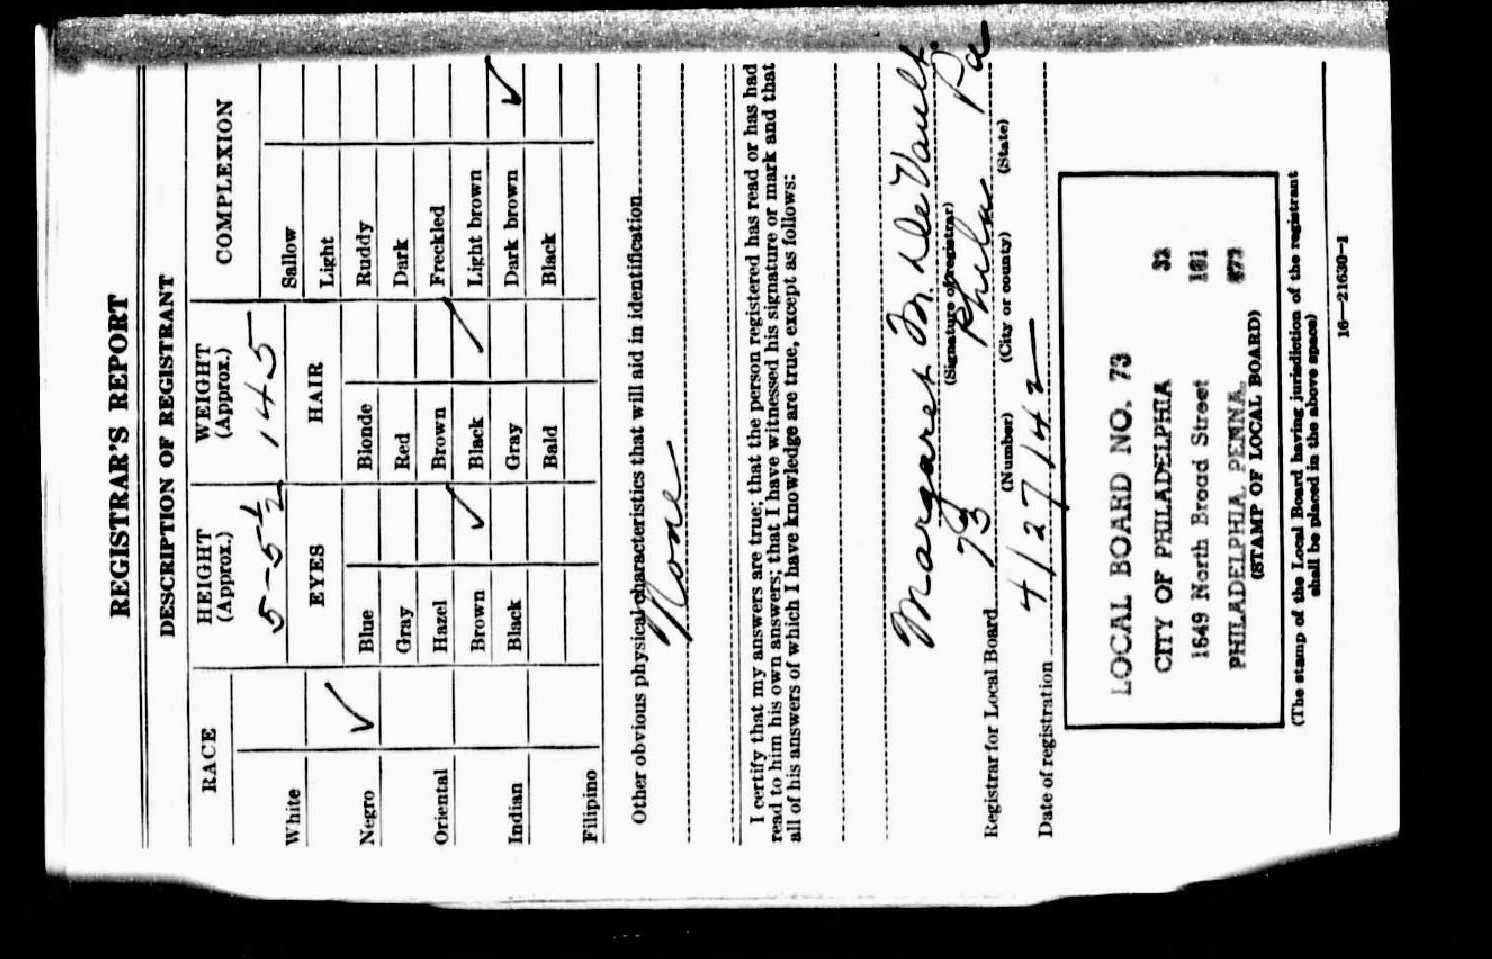 REGISTRAR'S REPORT
DESCRIPTION OF REGISTRANT
RACE
HEIGHT (Approx.)
WEIGHT (Approx.)
COMPLEXION
5-5½
145
EYES
HAIR
White
Negro ✓
Oriental
Indian
Filipino
Blue
Gray
Hazel
Brown ✓
Black
Blonde
Red
Brown
Black ✓
Gray
Bald
Sallow
Light
Ruddy
Dark
Freckled
Light brown
Dark brown ✓
Black
Other obvious physical characteristics that will aid in identification
None
I certify that my answers are true; that the person registered has read or has had
read to him his own answers; that I have witnessed his signature or mark and that
all of his answers of which I have knowledge are true, except as follows:
Margaret M. DeVault
(Signature of registrar)
Registrar for Local Board 73 Phila Pa
(Number) (City or county) (State)
Date of registration 4/27/42
LOCAL BOARD NO. 73
CITY OF PHILADELPHIA 32
1649 North Broad Street 101
PHILADELPHIA, PENNA. 073
(STAMP OF LOCAL BOARD)
(The stamp of the Local Board having jurisdiction of the registrant
shall be placed in the above space)
16—21630-1